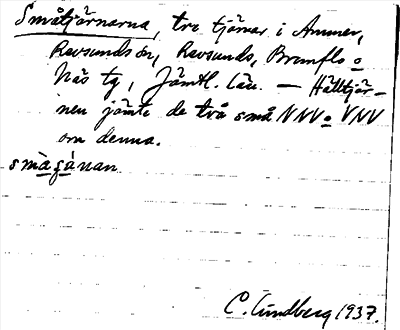 Småtjärnarna, tre tjärnar i Ammer,
Revsunds sn, Revsunds, Brunflo o
Näs tg, Jämtl. län. — Hälltjär-
nen jämte de två små NNV o VNV
om denna.
C. Lundberg 1937.